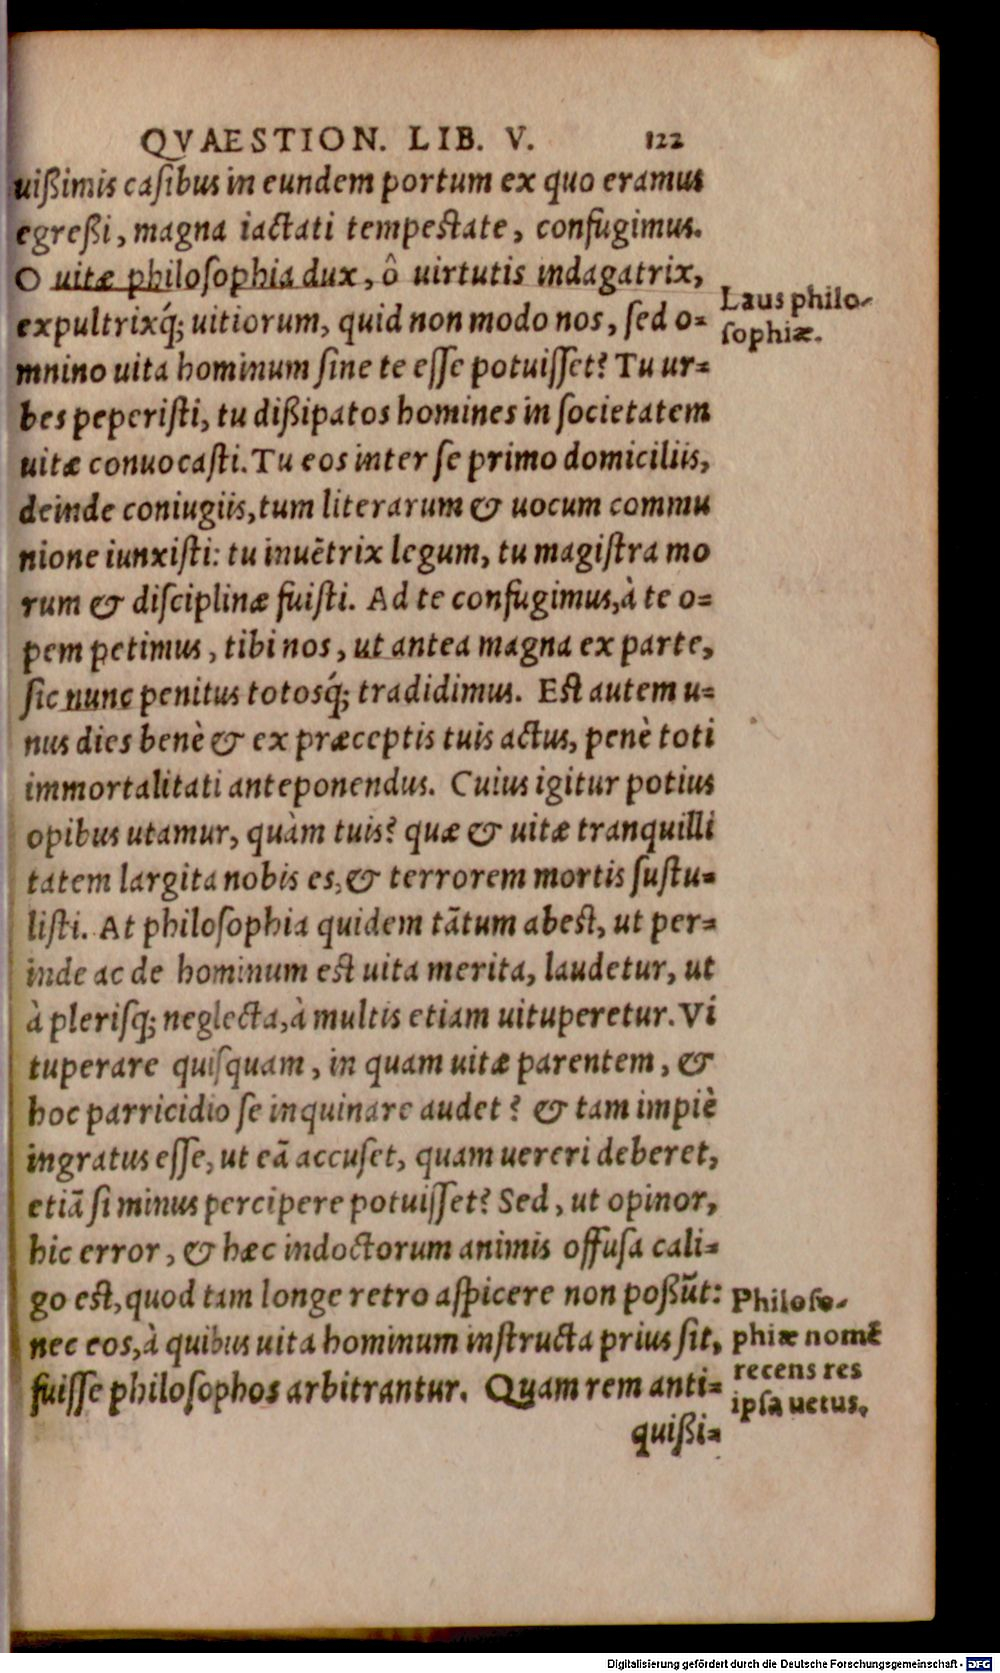 QVAESTION. LIB. V. 122
uißimis casibus in eundem portum ex quo eramus
egreßi, magna iactati tempestate, confugimus.
O uitæ philosophia dux, ô uirtutis indagatrix,
expultrixq́; uitiorum, quid non modo nos, sed o-
mnino uita hominum sine te esse potuisset? Tu ur-
bes peperisti, tu dißipatos homines in societatem
uitæ conuocasti. Tu eos inter se primo domiciliis,
deinde coniugiis, tum literarum & uocum commu
nione iunxisti: tu inuẽtrix legum, tu magistra mo
rum & disciplinæ fuisti. Ad te confugimus, à te o-
pem petimus, tibi nos, ut antea magna ex parte,
sic nunc penitus totosq́; tradidimus. Est autem u-
nus dies benè & ex præceptis tuis actus, penè toti
immortalitati anteponendus. Cuius igitur potius
opibus utamur, quàm tuis? quæ & uitæ tranquilli
tatem largita nobis es, & terrorem mortis sustu-
listi. At philosophia quidem tãtum abest, ut per-
inde ac de hominum est uita merita, laudetur, ut
à plerisq; neglecta, à multis etiam uituperetur. Vi
tuperare quisquam, in quam uitæ parentem, &
hoc parricidio se inquinare audet? & tam impiè
ingratus esse, ut eã accuset, quam uereri deberet,
etiã si minus percipere potuisset? Sed, ut opinor,
hic error, & hæc indoctorum animis offusa cali-
go est, quod tam longe retro aspicere non poßũt:
nec eos, à quibus uita hominum instructa prius sit,
fuisse philosophos arbitrantur. Quam rem anti-
quißi-
Laus philo-
sophiæ.
Philoso-
phiæ nomẽ
recens res
ipsa uetus.
Digitalisierung gefördert durch die Deutsche Forschungsgemeinschaft - DFG